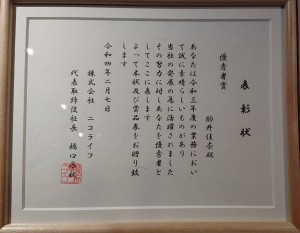 表彰状
優秀者賞
駒井佳奈殿
あなたは令和三年度の業務におい
て誠に素晴らしいものがあり
当社の発展の為に活躍されました
その努力に対しあなたを優秀者と
してここに表します
よって本状及び賞品券をお贈り致
します
令和四年二月七日
株式会社 ニコライフ
代表取締役社長 橋口